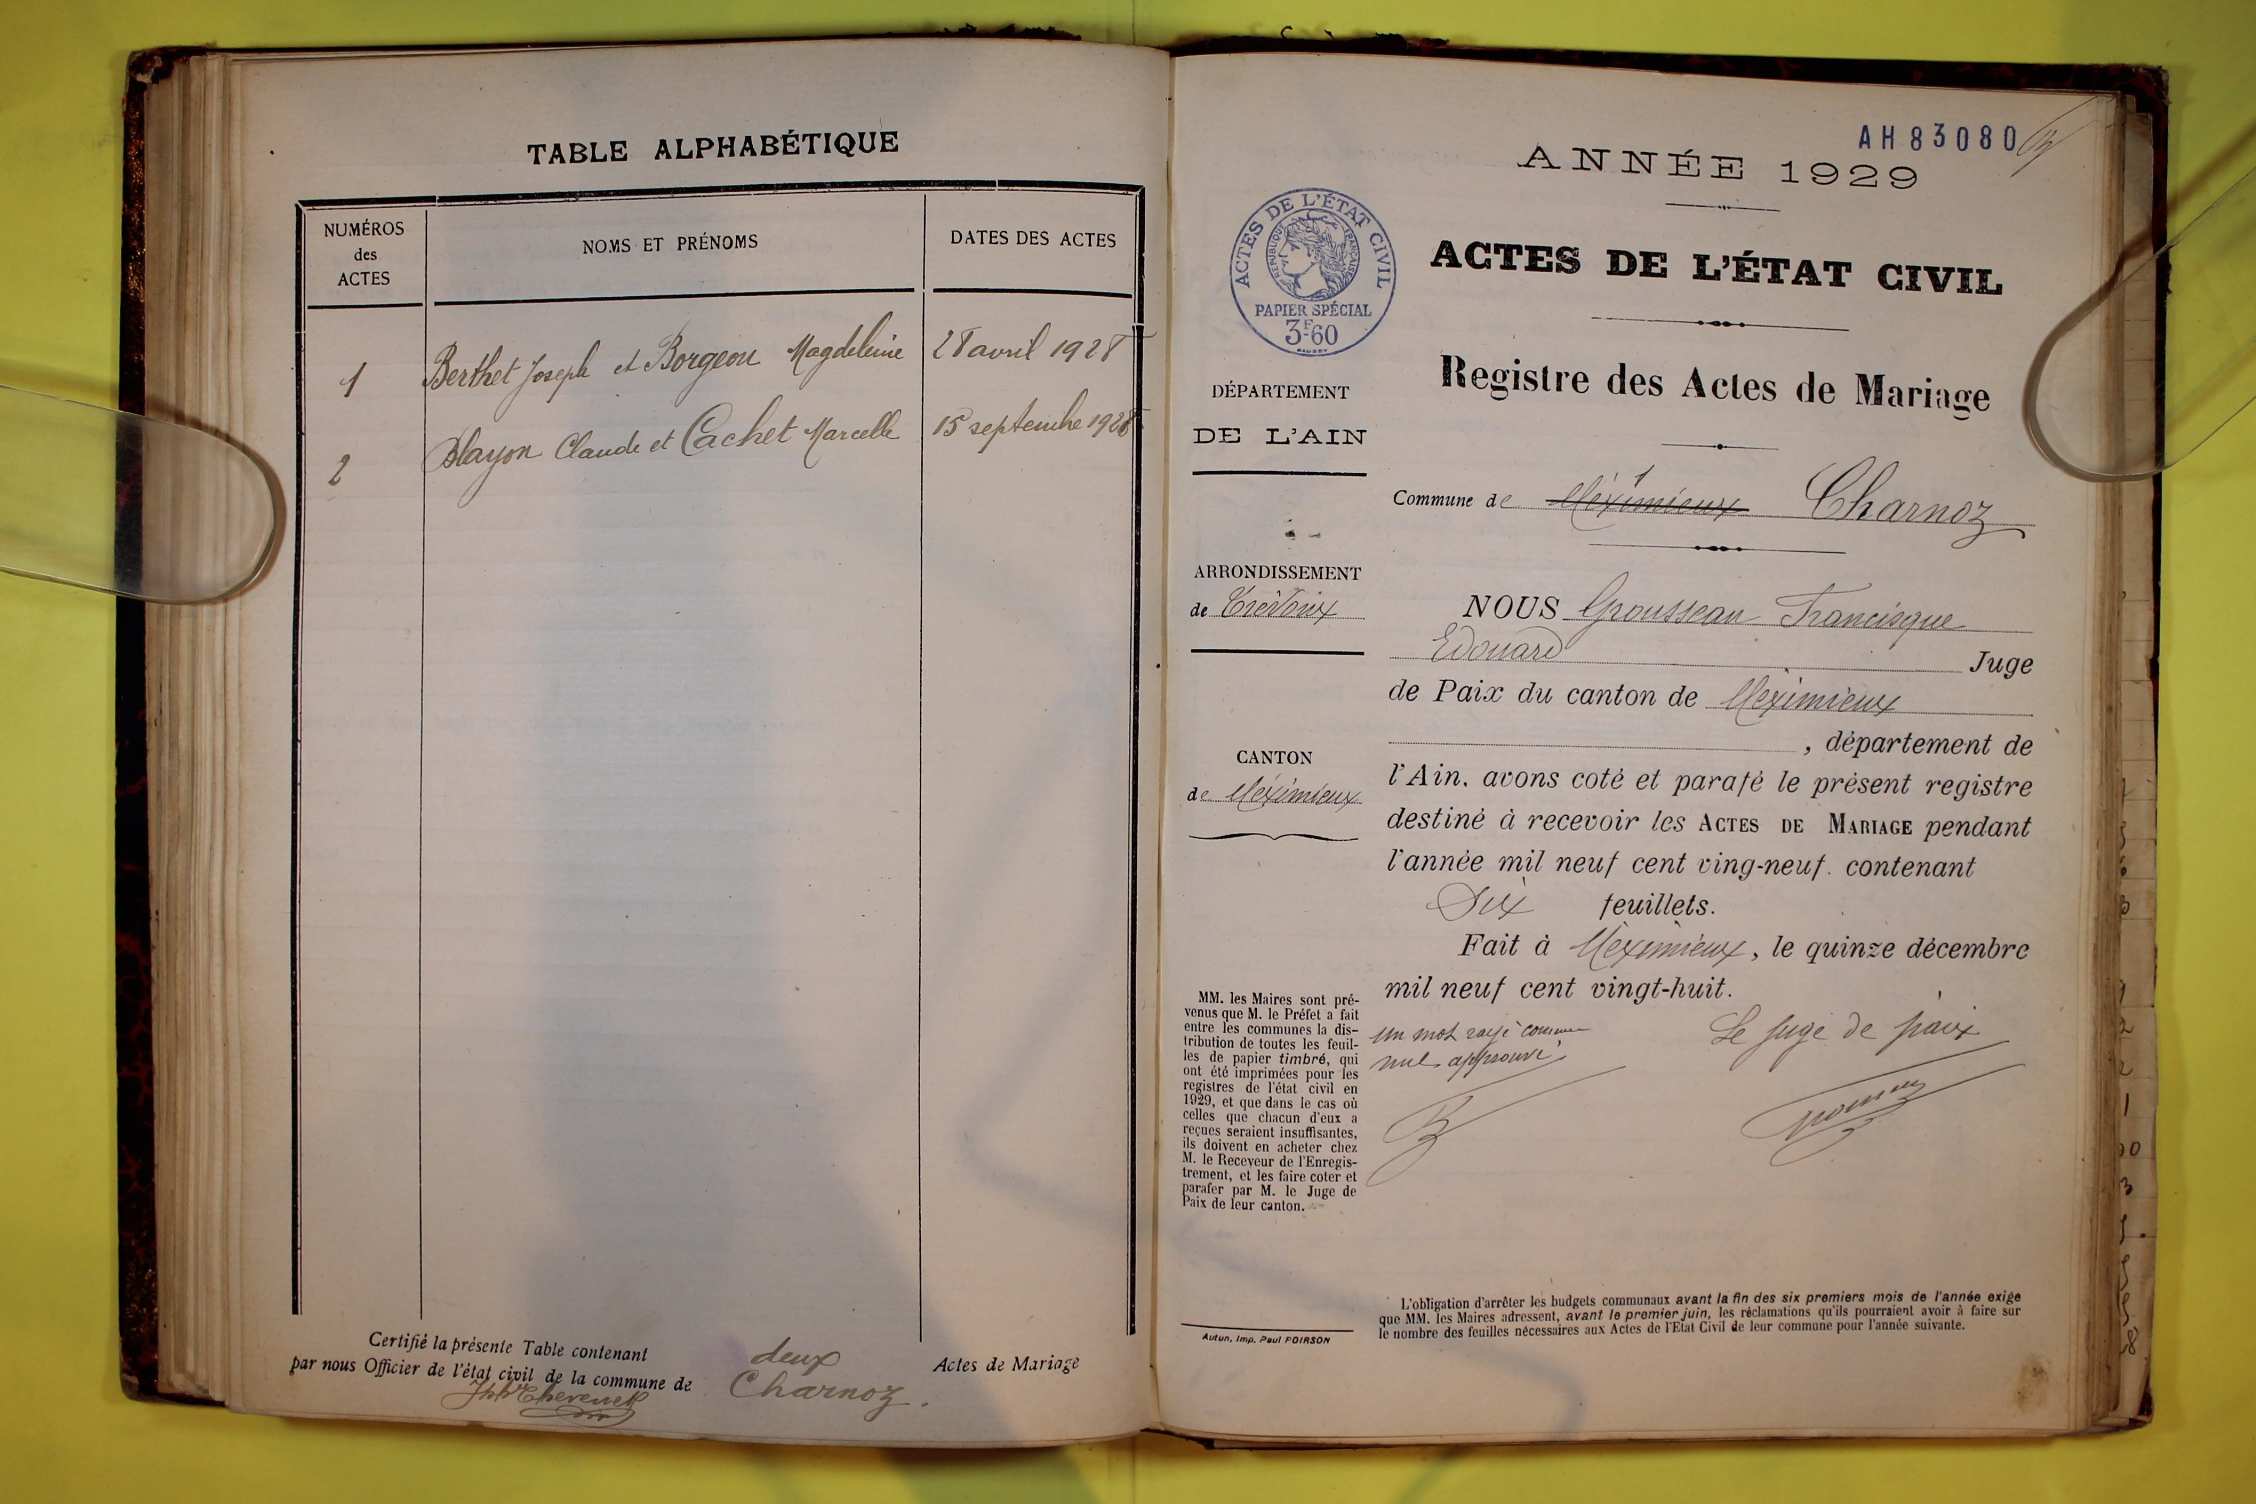 TABLE ALPHABÉTIQUE
NUMÉROS
des
ACTES
NOMS ET PRÉNOMS
DATES DES ACTES
1 Berthet Joseph et Borgeon Magdeleine 28 avril 1928
2 Blayon Claude et Cachet Marcelle 15 septembre 1928
Certifié la présente Table contenant deux Actes de Mariage
par nous Officier de l'état civil de la commune de Charnoz.
AH83080
ANNÉE 1929
ACTES DE L'ÉTAT CIVIL
RÉPUBLIQUE FRANÇAISE
PAPIER SPÉCIAL
3F60
ACTES DE L'ÉTAT CIVIL
Registre des Actes de Mariage
DÉPARTEMENT
DE L'AIN
Commune de Méximieux Charnoz
ARRONDISSEMENT
de Trévoux
CANTON
de Méximieux
NOUS Grousseau Francisque
Edouard Juge
de Paix du canton de Méximieux
, département de
l'Ain, avons coté et parafé le présent registre
destiné à recevoir les ACTES DE MARIAGE pendant
l'année mil neuf cent ving-neuf. contenant
Six feuillets.
Fait à Méximieux, le quinze décembre
mil neuf cent vingt-huit.
un mot rayé comme
nul approuvé
Le Juge de paix
MM. les Maires sont pré-
venus que M. le Préfet a fait
entre les communes la dis-
tribution de toutes les feuil-
les de papier timbré, qui
ont été imprimées pour les
registres de l'état civil en
1929, et que dans le cas où
celles que chacun d'eux a
reçues seraient insuffisantes,
ils doivent en acheter chez
M. le Receveur de l'Enregis-
trement, et les faire coter et
parafer par M. le Juge de
Paix de leur canton.
Autun, Imp. Paul POIRSON
L'obligation d'arrêter les budgets communaux avant la fin des six premiers mois de l'année exige
que MM. les Maires adressent, avant le premier juin, les réclamations qu'ils pourraient avoir à faire sur
le nombre des feuilles nécessaires aux Actes de l'Etat Civil de leur commune pour l'année suivante.